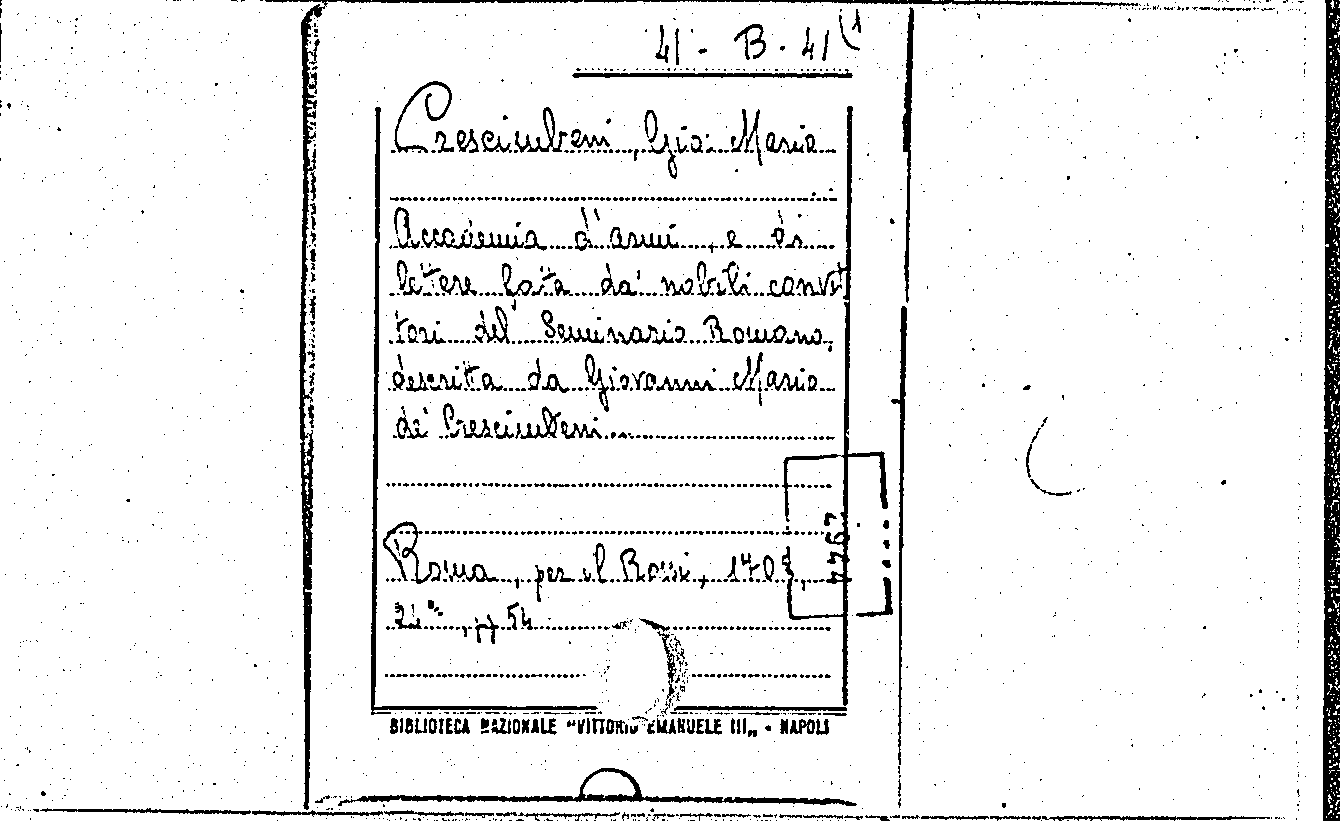 41 - B - 41 (1
Crescimbeni, Gio: Maria
Accademia d'armi, e di
lettere fatta da' nobili convit
tori del Seminario Romano,
descritta da Giovanni Maria
de' Crescimbeni...
Roma, per il Rossi,
24°, pp 54
7767
BIBLIOTECA NAZIONALE "VITTORIO EMANUELE III„ - NAPOLI